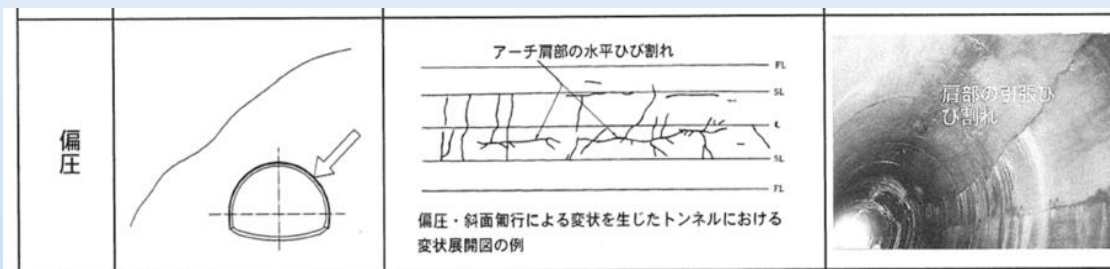 偏圧
アーチ肩部の水平ひび割れ
FL
SL
℄
SL
FL
偏圧・斜面匍行による変状を生じたトンネルにおける
変状展開図の例
肩部の引張ひ
び割れ